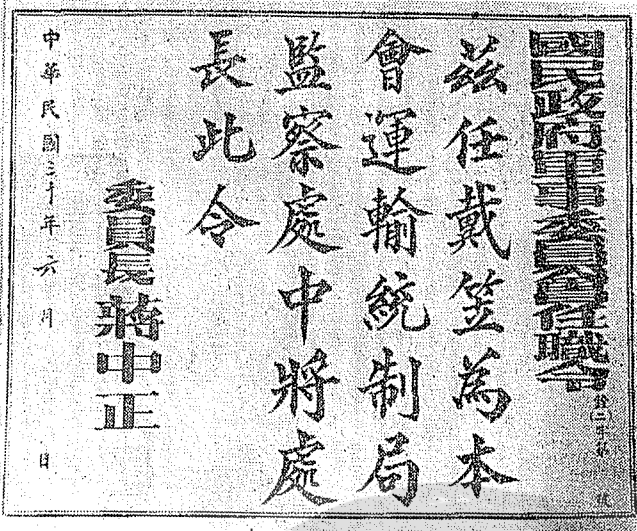 國民政府軍事委員會任職令
銓(二)字第 號
茲任戴笠為本
會運輸統制局
監察處中將處
長此令
委員長蔣中正
中華民國三十年六月 日